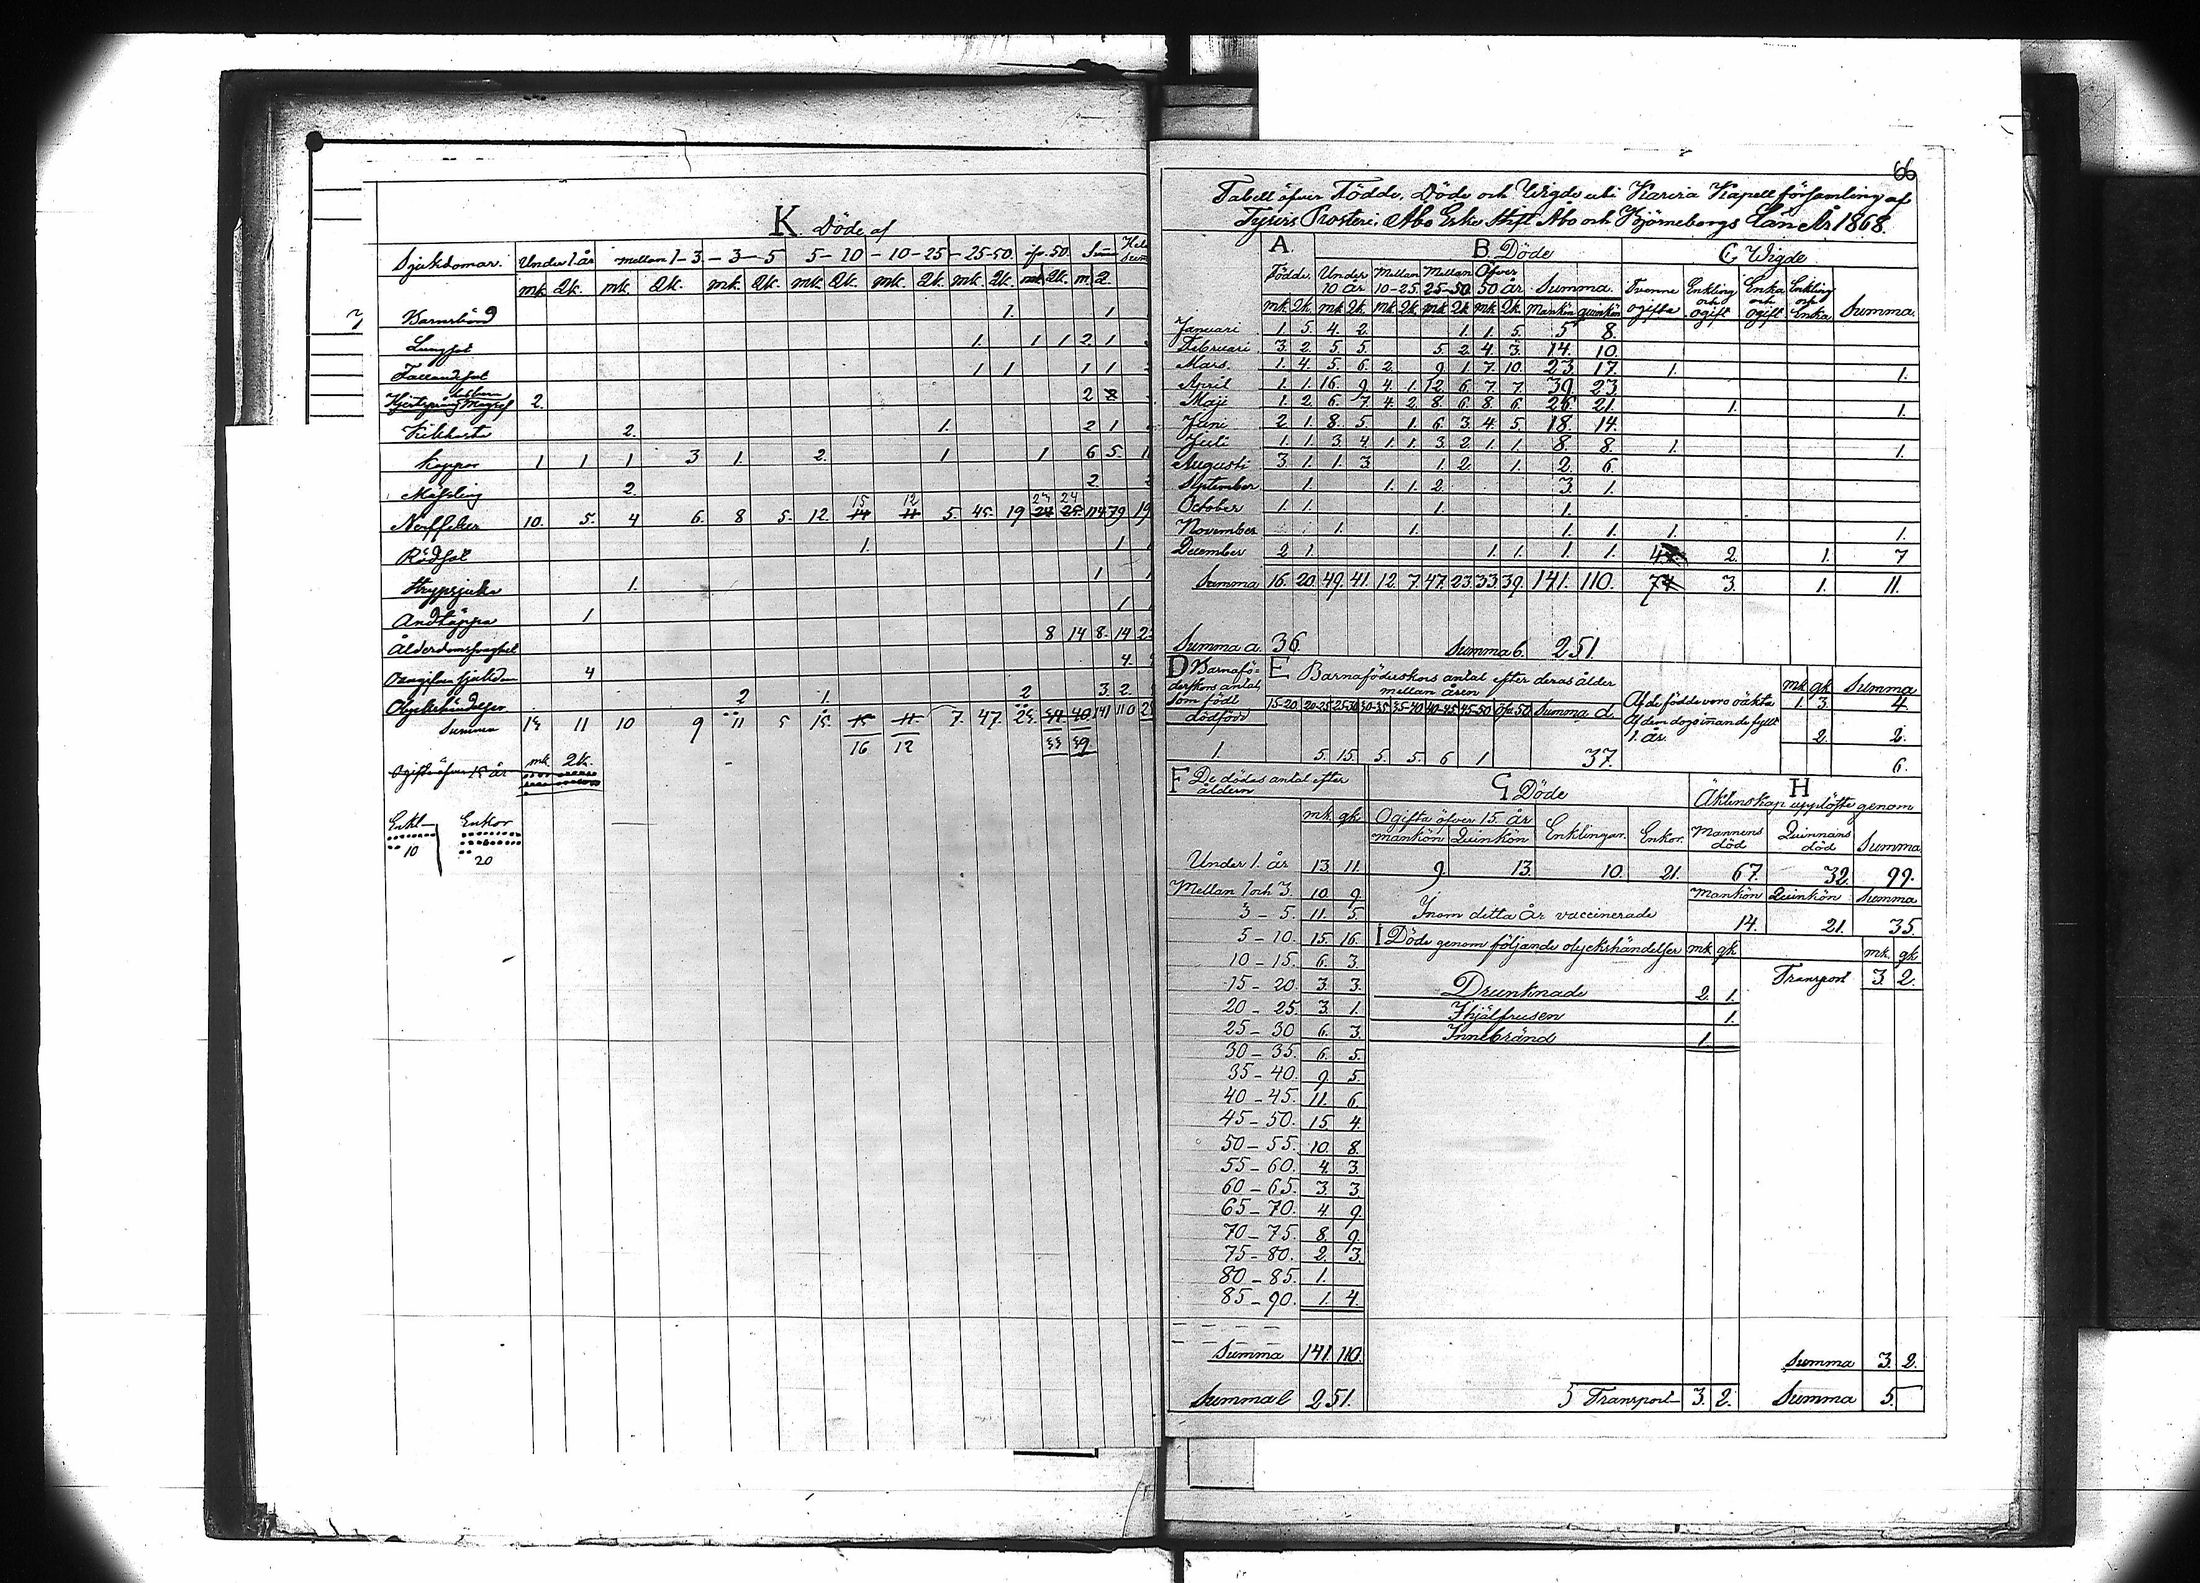 K. Döde af
Sjukdomar. Under 1 år mellan 1-3 - 3-5 5-10 - 10-25 - 25-50. öfv. 50. Sum
mk. Qk. mk. Qk. mk. Qk. mk. Qk. mk. Qk. mk. Qk. mk. Qk. m. Q.
Barnsbörd 1. 1
Lungsot 1. 1 1 2 1
1 1 1 1
2. 2
Kikhosta 2. 1. 2 1
Koppor 1 1 1 3 1. 2. 1 1 6 5.
Mässling 2. 2.
Nerffeber 10. 5. 4 6. 8 5. 12. 15 12 5. 45. 19 24 114 79
Rödsot 1. 1
Strypsjuka 1. 1
Andtäppa 1 1
Ålderdomssvaghet 8 14 8. 14
Oangifven sjukdom 4 4.
Olyckshändelser 2 1. 2 3. 2.
Summa 13 11 10 9 11 5 15. 7. 47. 23. 141 110
16 12 33 39
mk. Qk.
Ogifta öfver 15 år
Enkl Enkor
10 20
66
Tabell öfver Födde, Döde och Wigde uti Karvia Kapellförsamling af
Tyrvis Prosteri, Åbo Erke Stift Åbo och Björneborgs Län År 1868.
A. B. Döde C. Wigde
Födde. Under 10 år Mellan 10-25. Mellan 25-50. Öfver 50 år. Summa. Tvenne ogifta Enkling och ogift Enka och ogift Enkling och Enka Summa.
mk Qk mk Qk mk Qk mk Qk mk Qk. Mankön Quinkön
Januari 1. 5. 4. 2. 1. 1. 5. 5 8.
Februari 3. 2. 5. 5. 5. 2. 4. 3. 14. 10.
Mars. 1. 4. 5. 6. 2. 9. 1. 7. 10. 23. 17. 1. 1.
April 1. 1. 16. 9. 4. 1. 12. 6. 7. 7. 39. 23.
Maji 1. 2. 6. 7. 4. 2. 8. 6. 8. 6. 26. 21. 1. 1.
Juni 2. 1. 8. 5. 1. 6. 3. 4. 5. 18. 14.
Juli 1. 1. 3. 4. 1. 1. 3. 2. 1. 1. 8. 8. 1. 1.
Augusti 3. 1. 1. 3. 1. 2. 1. 2. 6.
September 1. 1. 1. 2. 3. 1.
October 1. 1. 1. 1.
November 1. 1. 1. 1. 1. 1.
December 2. 1. 1. 1. 1. 1. 4 2. 1. 7
Summa 16. 20. 49. 41. 12. 7. 47. 23. 33. 39. 141. 110. 7 3. 1. 11.
Summa a. 36. Summa b. 251.
D Barnaföderskors antal som födt E Barnaföderskors antal efter deras ålder mellan åren mk. qk. Summa
dödfödd 15-20. 20-25 25-30 30-35. 35-40 40-45 45-50 öfv. 50 Summa d. Af de födde voro oäkta 1. 3. 4
Af dem dogo innande fyllt 1. år. 2. 2.
1. 5. 15. 5. 5. 6 1 37. 6.
F De dödas antal efter åldern G Döde H Äktenskap upplöste genom
mk. qk. Ogifta öfver 15. år Enklingar. Enkor. Mannens död Quinnans död Summa
Mankön Quinkön
Under 1. år 13. 11. 9. 13. 10. 21. 67. 32. 99.
Mellan 1 och 3. 10. 9. Mankön Quinkön Summa
3 - 5. 11. 5. Inom detta År vaccinerade 14. 21. 35.
5 - 10. 15. 16. I Döde genom följande olyckshändelser mk qk mk. qk
10 - 15. 6. 3. Transport 3. 2.
15 - 20. 3. 3. Drunknade 2. 1.
20 - 25. 3. 1. Ihjälfrusen 1.
25 - 30 6. 3. Innebränd 1.
30 - 35. 6. 5.
35 - 40. 9. 5.
40 - 45. 11. 6.
45 - 50. 15. 4.
50 - 55. 10. 8.
55 - 60. 4. 3.
60 - 65. 3. 3.
65 - 70. 4. 9.
70 - 75. 8. 9.
75 - 80. 2. 3.
80 - 85. 1.
85 - 90. 1. 4.
Summa 141. 110. Summa 3. 2.
Summa b 251. 5 Transport 3. 2. Summa 5.